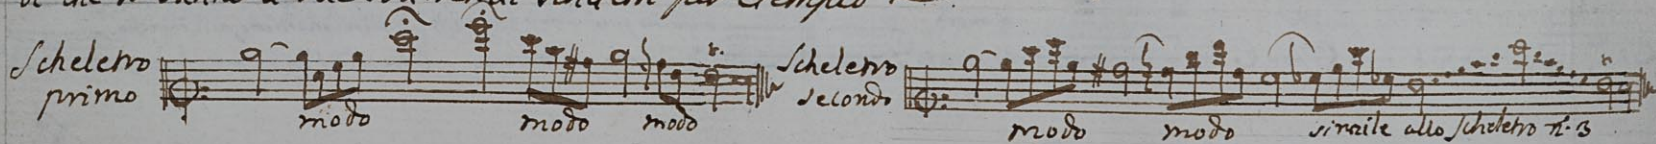 per esempio
Scheletro
primo
modo modo modo
Scheletro
secondo
modo modo simile allo Scheletro n. 3